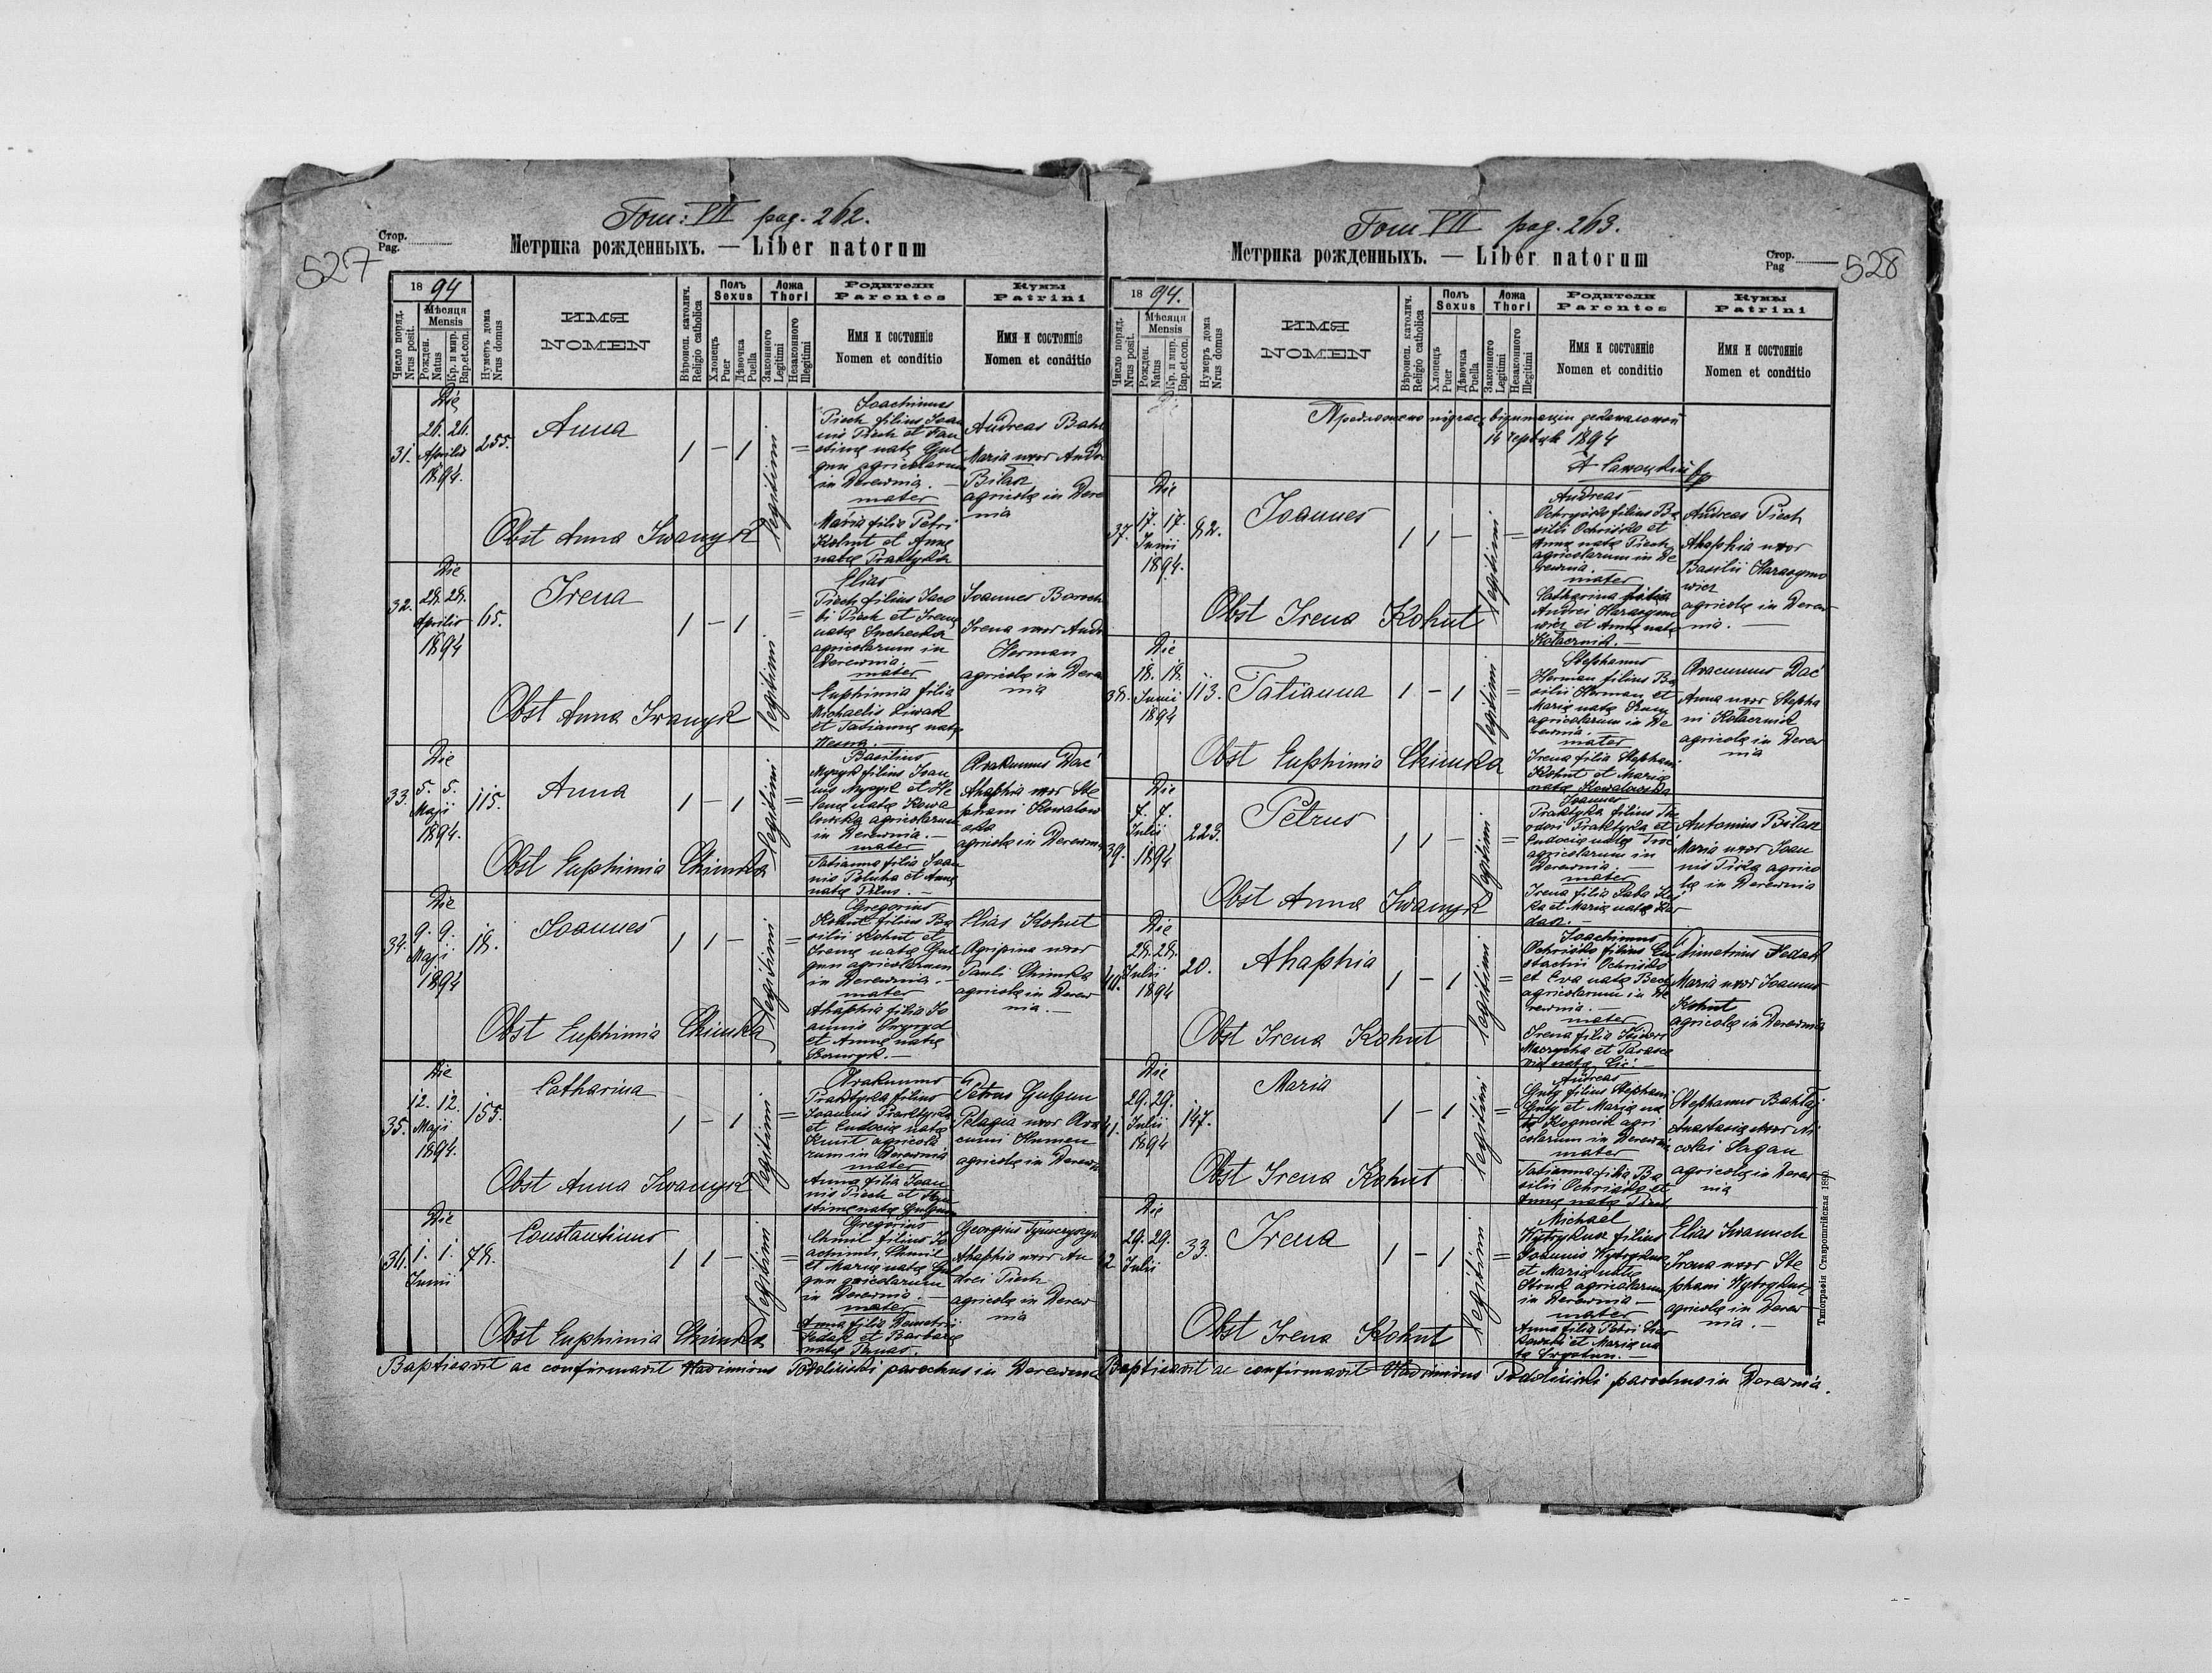 Tom: VII pag. 262.
Стор.
Pag.
527
Метрика рожденныхъ. — Liber natorum
18 94
Число поряд.
Nrus posit.
Мѣсяця
Mensis
Рожден.
Natus
Кр. и мир.
Bap.et.con.
Нумеръ дома
Nrus domus
ИМЯ
NOMEN
Вѣроисп. католич.
Religio catholica
Полъ
Sexus
Хлопецъ
Puer
Дѣвочка
Puella
Ложа
Thori
Законного
Legitimi
Незаконного
Illegitimi
Родители
Parentes
Имя и состоянiе
Nomen et conditio
Кумы
Patrini
Имя и состоянiе
Nomen et conditio
31.
Die
26. 26.
Aprilis
1894.
255.
Anna
Obst Anna Iwanyk
1 — 1
legitimi
=
Joachimus
Piech filius Joan
nis Piech et Fau
stinę natę Gul
gun agricolarum
in Derewnia. —
mater
Maria filia Petri
Kohut et Annę
natę Praktyka
Andreas
Maria uxor
Bilan
agricolę in Dere
nia
32.
Die
28. 28.
Aprilis
1894
65.
Irena
Obst Anna Iwanyk
1 — 1
legitimi
=
Elias
Piech filius Jaco
bi Piech et Irenę
natę
agricolarum in
Derewnia. —
mater
Euphimia filia
Michaelis
et Tatiannę natę
Joannes
Irena uxor
Herman
agricolę in
nia
33.
Die
5. 5.
Maji
1894.
115.
Anna
Obst Euphimia Chimka
1 — 1
legitimi
=
Basilius
Mycyk filius Joan
nis Mycyk et He
lenę natę Kowa
lowska agricolarum
in Derewnia. —
mater
Tatianna filia Joan
nis Poluha et Annę
natę
Arakumus Dać
Ahaphia uxor Ste
phani Kowalow
ska
agricolę in Derewnia
34.
Die
9. 9.
Maji
1894
18.
Joannes
Obst Euphimia Chimka
1 1 —
legitimi
=
Gregorius
Kohut filius Ba
silii Kohut et
Irenę natę Gul
gun agricolarum
in Derewnia. —
mater
Ahaphia filia Jo
annis
et Annę natę
Elias Kohut
Agripina uxor
Pauli Chimka
agricolę in Derew
nia. —
35.
Die
12. 12.
Maji
1894.
155.
Catharina
Obst Anna Iwanyk
1 — 1
legitimi
=
Arakumus
Praktyka filius
Joannis Praktyka
et Eudocię natę
agricola
rum in Derewnia
mater
Anna filia Joan
nis Piech et Fau
stinę natę Gulgun
Petrus Gulgun
Pelagia uxor Ara
cumi Humen
agricolę in Derewn
36.
Die
1. 1.
Junii
78.
Constantinus
Obst Euphimia Chimka
1 1 —
legitimi
=
Gregorius
Chmil filius Jo
achimi Chmil
et Marię natę Gul
gun agricolarum
in Derewnia. —
mater
Anna filia Demetrii
Fedak et Barbarę
natę
Georgius
Ahaphia uxor An
drei Piech
agricolę in Derew
nia
Baptisavit ac confirmavit Wladimirus Podoliński parochus in Derewnia
Tom VII pag. 263.
Метрика рожденныхъ. — Liber natorum
Стор.
Pag
528
18 94.
Число поряд.
Nrus posit.
Мѣсяця
Mensis
Рожден.
Natus
Кр. и мир.
Bap.et.con.
Нумеръ дома
Nrus domus
ИМЯ
NOMEN
Вѣроисп. католич.
Religio catholica
Полъ
Sexus
Хлопецъ
Puer
Дѣвочка
Puella
Ложа
Thori
Законного
Legitimi
Незаконного
Illegitimi
Родители
Parentes
Имя и состоянiе
Nomen et conditio
Кумы
Patrini
Имя и состоянiе
Nomen et conditio
Die
1894
37.
Die
17. 17.
Junii
1894.
82.
Joannes
Obst Irena Kohut
1 1 —
legitimi
=
Andreas
filius Ba
silii et
Annę natę Piech
agricolarum in De
rewnia. —
mater
Catharina filia
Andrei Harasymo
wicz et Annę natę
Kołacznik. —
Andreas Piech
Ahaphia uxor
Basilii Harasymo
wicz
agricolę in Derew
nia. —
38.
Die
18. 18.
Junii
1894
113.
Tatianna
Obst Euphimia Chimka
1 — 1
legitimi
=
Stephanus
Herman filius Ba
silii Herman et
Marię natę
agricolarum in De
rewnia.
mater
Irena filia Stephani
Kohut et Marię
natę Kowalowska
Aracumus Dać
Anna uxor Stepha
ni Kołacznik
agricolę in Derew
nia
39.
Die
7. 7.
Julii
1894
223.
Petrus
Obst Anna Iwanyk
1 1 —
legitimi
=
Joannes
Praktyka filius The
odori Praktyka et
Eudocię natę
agricolarum in
Derewnia. —
mater
Irena filia
et Marię natę
Antonius Bilan
Maria uxor Joan
nis agrico
lę in Derewnia
40.
Die
28. 28.
Julii
1894
20.
Ahaphia
Obst Irena Kohut
1 — 1
legitimi
=
Joachimus
filius Eu
stachii
et Eva natę
agricolarum in De
rewnia. —
mater
Irena filia
et Parasce
vię natę
Dimetrius Fedak
Maria uxor Joannis
Kohut
agricolę in Derewnia
41.
Die
29. 29.
Julii
1894
147.
Maria
Obst Irena Kohut
1 — 1
legitimi
=
Andreas
filius Stephani
et Marię na
tę agri
colarum in Derewnia
mater
Tatianna filia Ba
silii et
Annę natę Piech
Stephanus
Anastasia uxor Ni
colai
agricolę in Derew
nia
42
Die
29. 29.
Julii
33.
Irena
Obst Irena Kohut
1 — 1
legitimi
=
Michael
Wytrykus filius
Joannis Wytrykus
et Marię natę
agricolarum
in Derewnia —
mater
Anna filia Petri
et Marię na
tę
Elias
Irena uxor Ste
phani Wytrykus
agricolę in Derew
nia. —
Baptisavit ac confirmavit Wladimirus Podoliński parochus in Derewnia.
Типографiя Ставропигiйская 1890.